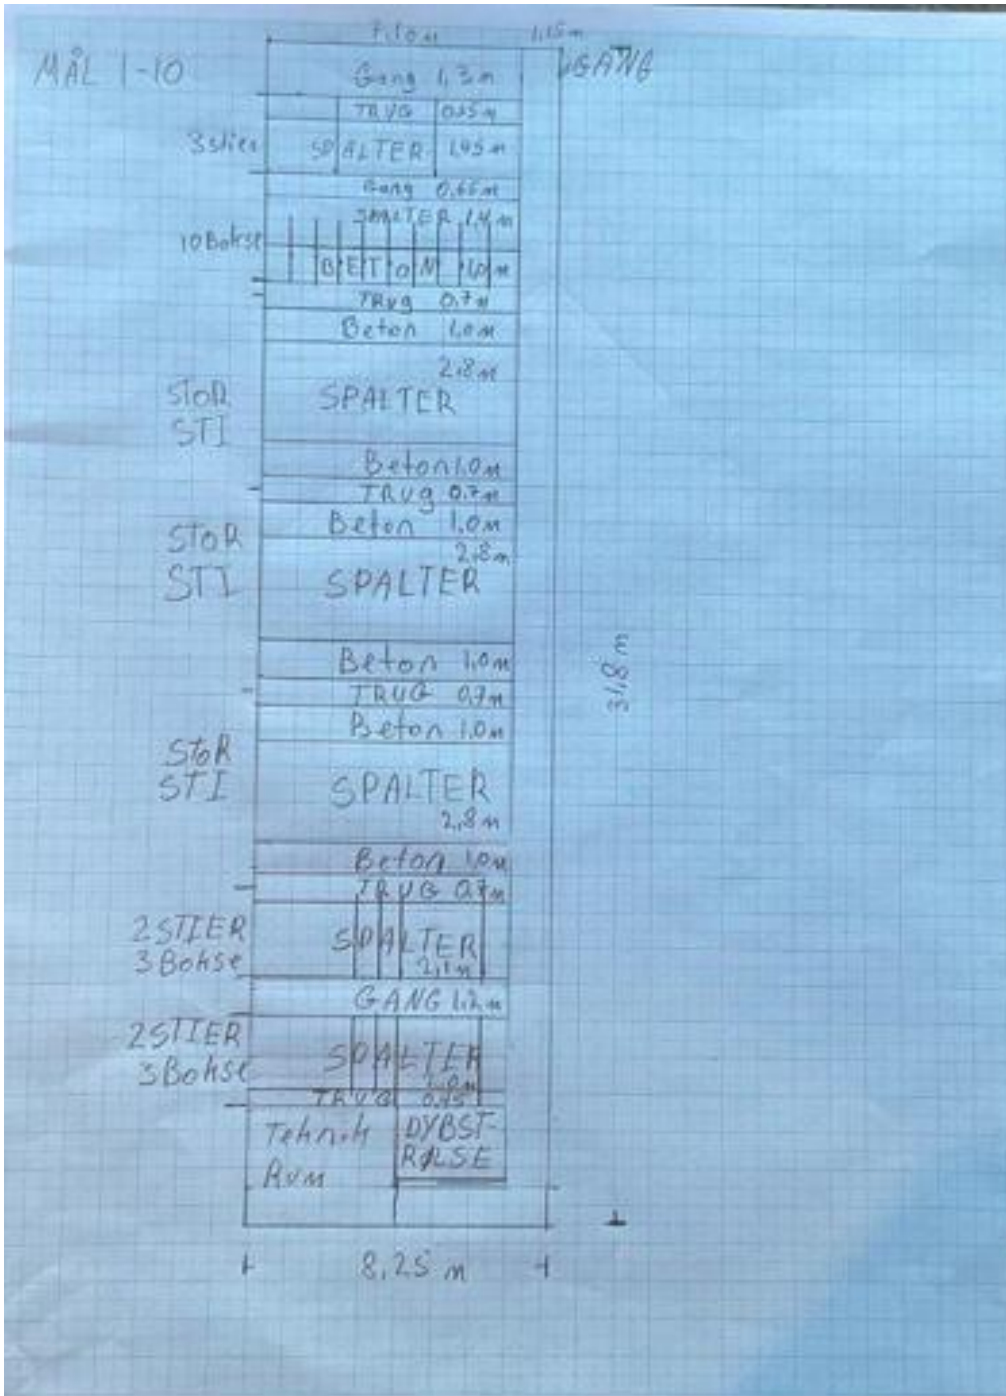 7,10m 1,15m
MÅL 1-10
GANG
Gang 1,3m
TRUG
3 stier
SPALTER 1,45m
Gang 0,65m
SPALTER 1,4m
10 Bokse
BETON 1,0m
TRUg 0.7m
Beton 1,0m
2,8m
STOR
STI
SPALTER
Beton 1,0m
TRUg 0.7m
Beton 1,0m
2,8m
STOR
STI
SPALTER
Beton 1,0m
TRUG 0,7m
Beton 1,0m
31,8 m
STOR
STI
SPALTER
2,8m
Beton 1,0m
TRUG 0,7m
2 STIER
3 Bokse
SPALTER
2,1m
GANG 1,2m
2 STIER
3 Bokse
SPALTER
TRUG
Teknik
Rum
DYBST-
RØLSE
8,25 m